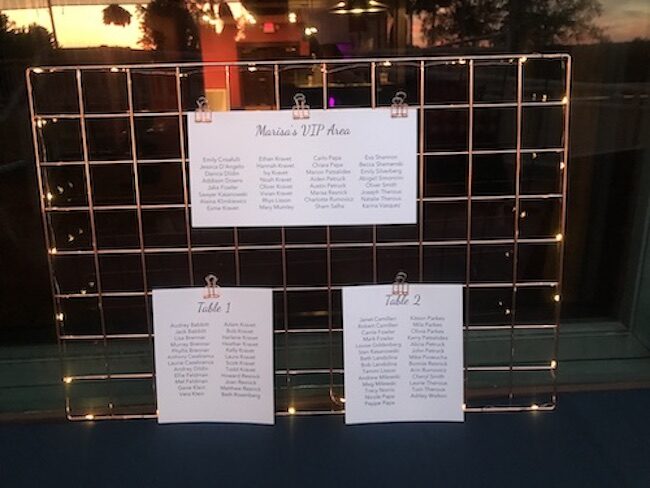 Marisa's VIP Area
Emily Crisafulli
Jessica D'Angelo
Danica Dlidin
Addison Downs
Julia Fowler
Sawyer Kasanowski
Alaina Klimkiewicz
Esme Kravet
Ethan Kravet
Hannah Kravet
Ivy Kravet
Noah Kravet
Oliver Kravet
Vivian Kravet
Rhys Lisson
Mary Mumley
Carlo Papa
Chiara Papa
Marion Patsalides
Aiden Petruck
Austin Petruck
Marisa Resnick
Charlotte Rumowicz
Sham Salha
Eva Shannon
Becca Shemanski
Emily Silverberg
Abigail Simoncini
Oliver Smith
Joseph Theroux
Natalie Theroux
Karina Vasquez
Table 1
Audrey Babbitt
Jack Babbitt
Lisa Brennan
Murray Brennan
Phyllis Brennan
Anthony Casabianca
Laurie Casabianca
Andrey Dlidin
Ellie Feldman
Mel Feldman
Gene Klein
Vera Klein
Adam Kravet
Bob Kravet
Harlene Kravet
Heather Kravet
Kelly Kravet
Laura Kravet
Scott Kravet
Todd Kravet
Howard Resnick
Joan Resnick
Matthew Resnick
Beth Rosenberg
Table 2
Janet Camilleri
Robert Camilleri
Carrie Fowler
Mark Fowler
Louise Guldenberg
Jean Kasanowski
Beth Landolina
Bob Landolina
Tammi Lisson
Andrew Milewski
Meg Milewski
Tracy Norris
Nicole Papa
Peppe Papa
Kason Parkey
Mila Parkey
Olivia Parkey
Kerry Patsalides
Alicia Petruck
John Petruck
Mike Powucha
Bonnie Resnick
Ann Rumowicz
Cheryl Smith
Laurie Theroux
Tom Theroux
Ashley Walton